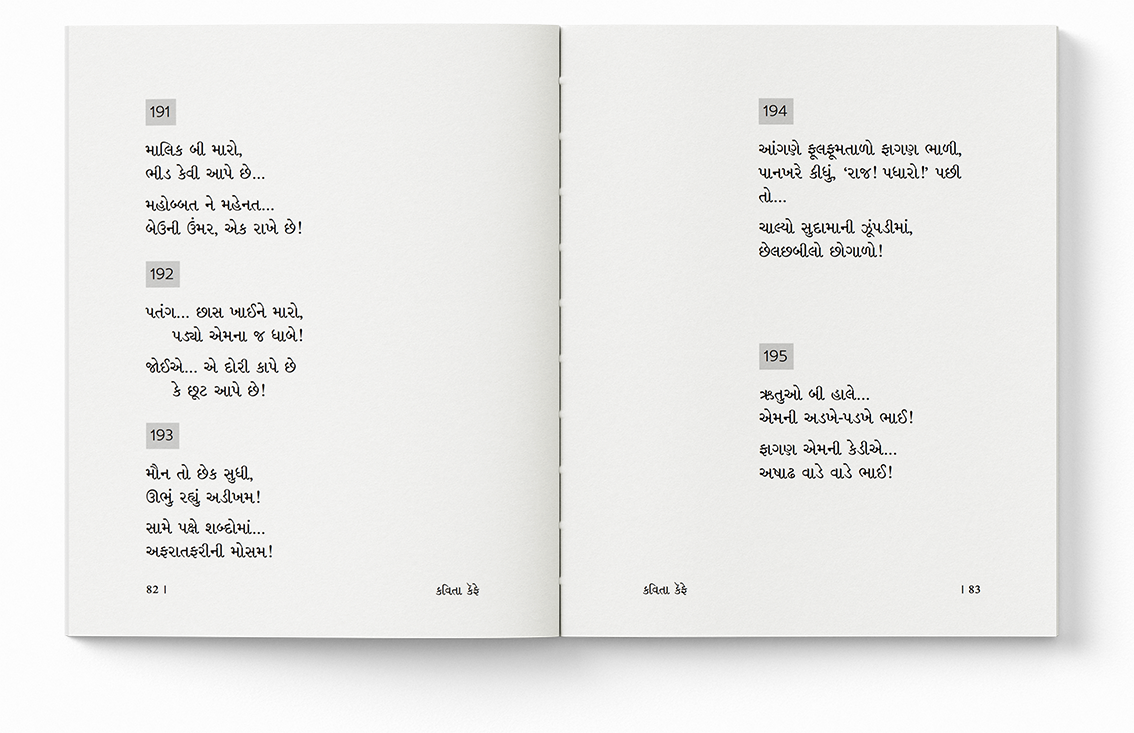 191
માલિક બી મારો,
ભીડ કેવી આપે છે...
મહોબ્બત ને મહેનત...
બેઉની ઉંમર, એક રાખે છે!
192
પતંગ... છાસ ખાઈને મારો,
પડ્યો એમના જ ધાબે!
જોઈએ... એ દોરી કાપે છે
કે છૂટ આપે છે!
193
મૌન તો છેક સુધી,
ઊભું રહ્યું અડીખમ!
સામે પક્ષે શબ્દોમાં...
અફરાતફરીની મોસમ!
82 |
કવિતા કૅફે
194
આંગણે ફૂલફૂમતાળો ફાગણ ભાળી,
પાનખરે કીધું, ‘રાજ! પધારો!’ પછી
તો...
ચાલ્યો સુદામાની ઝૂંપડીમાં,
છેલછબીલો છોગાળો!
195
ઋતુઓ બી હાલે...
એમની અડખે-પડખે ભાઈ!
ફાગણ એમની કેડીએ...
અષાઢ વાડે વાડે ભાઈ!
કવિતા કૅફે
| 83